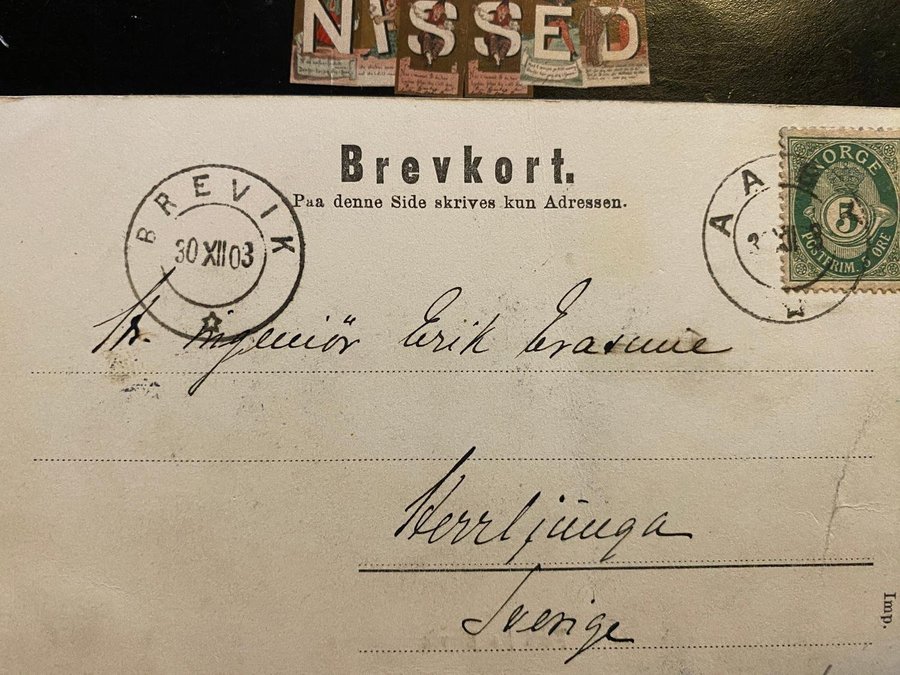 NISSED
Brevkort.
Paa denne Side skrives kun Adressen.
BREVIK
30 XII 03
NORGE
5
POSTFRIM. 5 ÖRE
Hr. ingeniör Erik Erasmie
Herrljunga
Sverige
Imp.